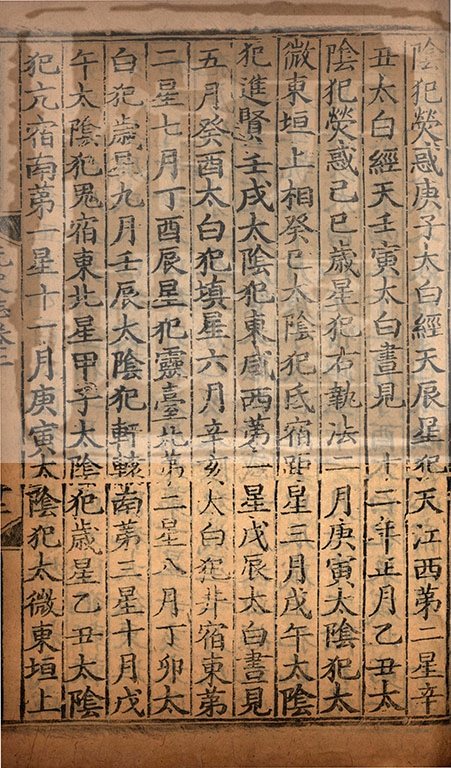 陰犯熒惑庚子太白經天辰星犯天江西第二星辛
丑太白經天壬寅太白晝見　十二年正月乙丑太
陰犯熒惑己巳歲星犯右執法二月庚寅太陰犯太
微東垣上相癸巳太陰犯氐宿距星三月戊午太陰
犯進賢壬戌太陰犯東咸西第一星戊辰太白晝見
五月癸酉太白犯填星六月辛亥太白犯井宿東第
二星七月丁酉辰星犯靈臺北第二星八月丁卯太
白犯歲星九月壬辰太陰犯軒轅南第三星十月戊
午太陰犯鬼宿東北星甲子太陰犯歲星乙丑太陰
犯亢宿南第一星十一月庚寅太陰犯太微東垣上